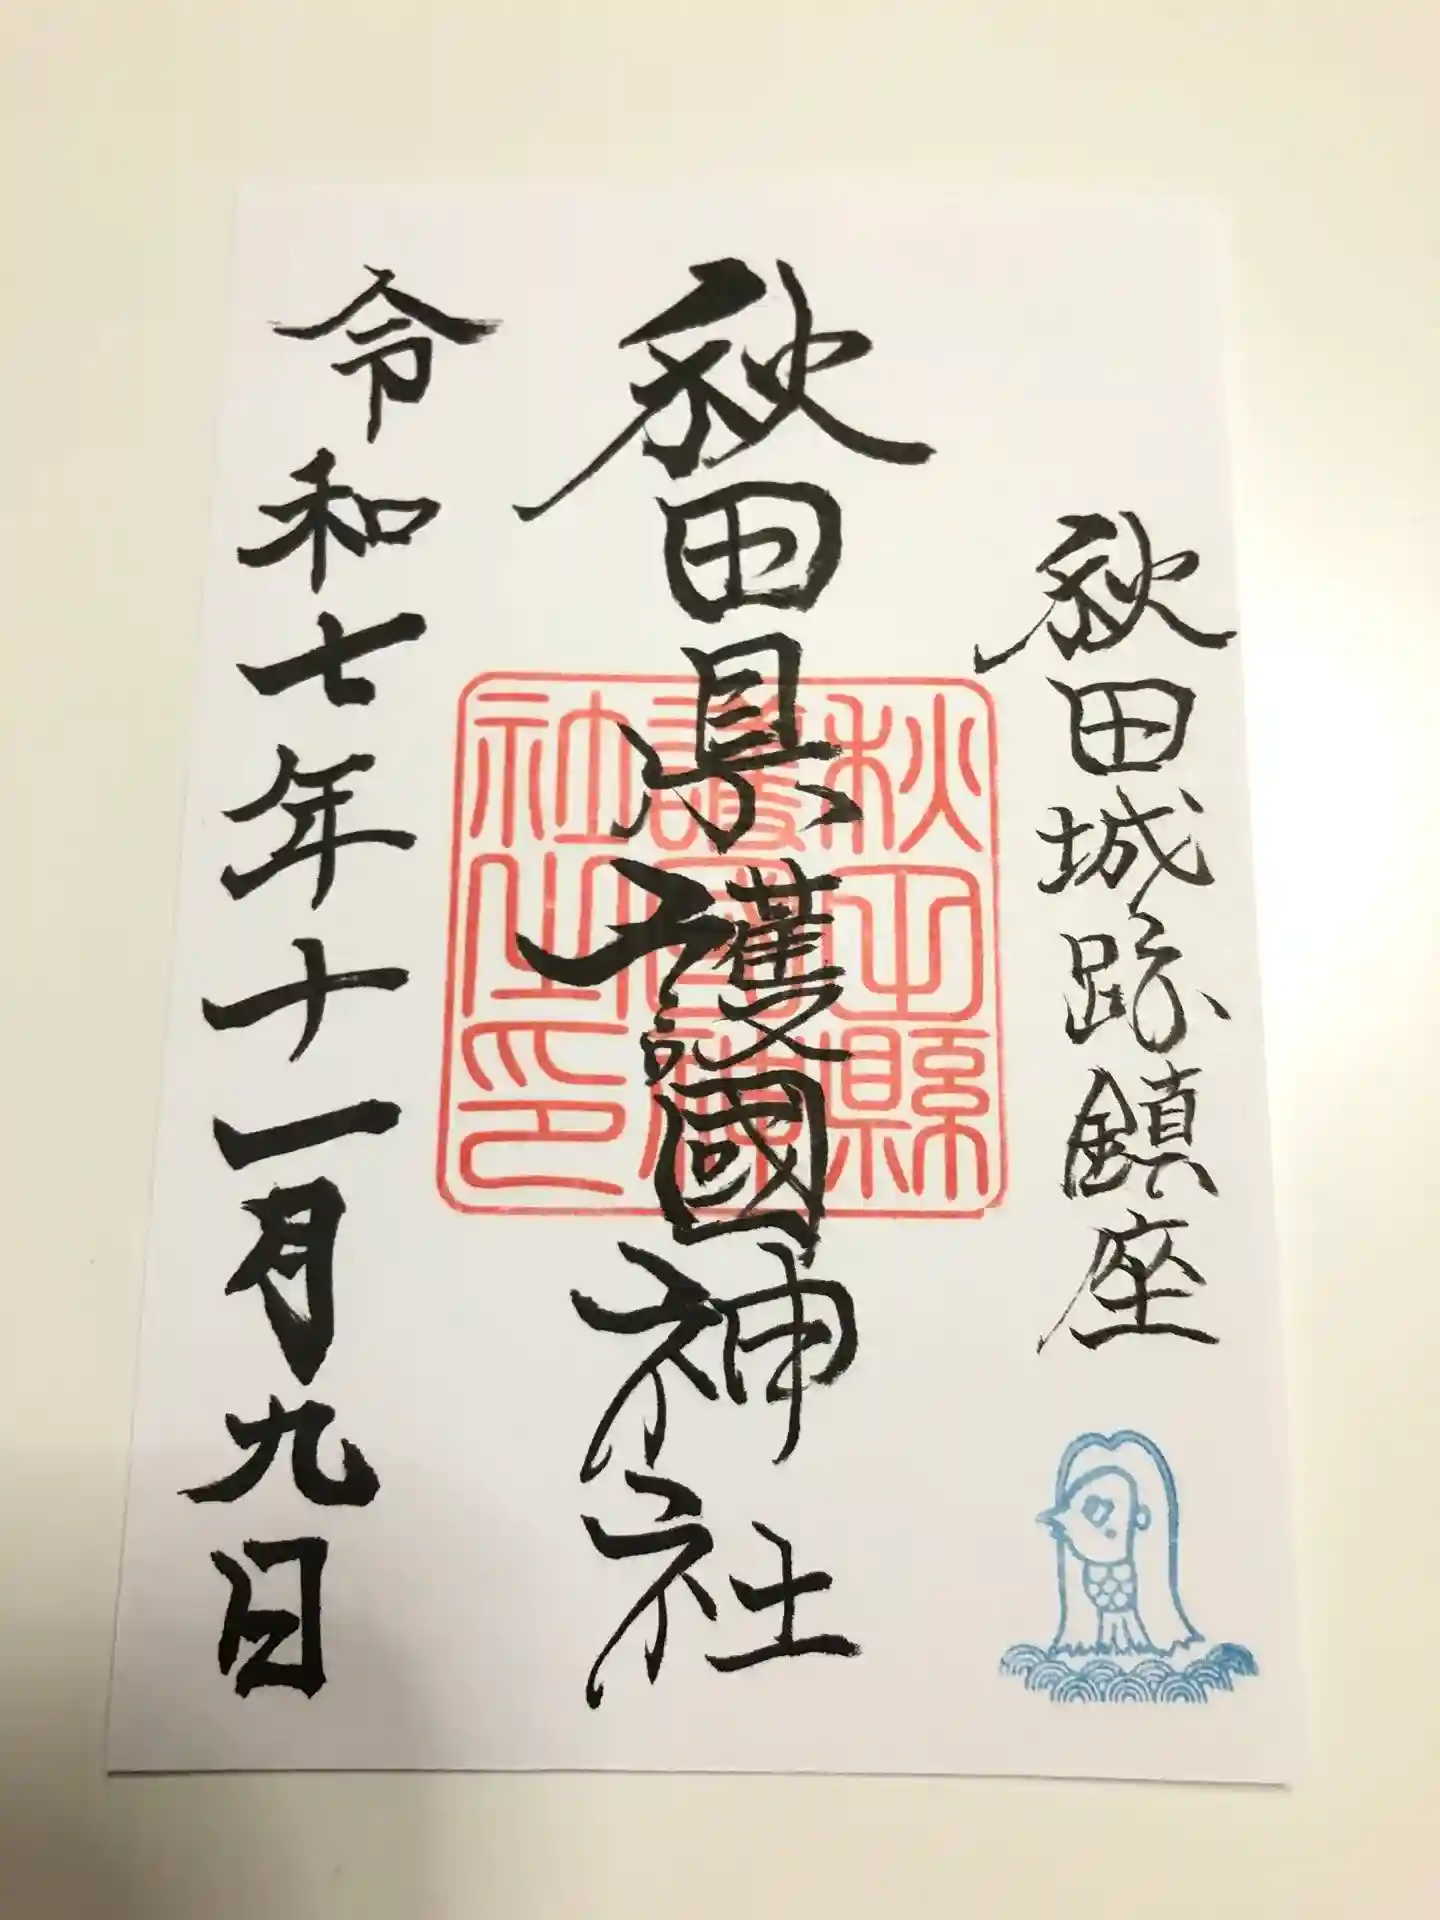 秋田城跡鎮座
秋田県護國神社
秋田縣護國神社之印
令和七年十一月九日